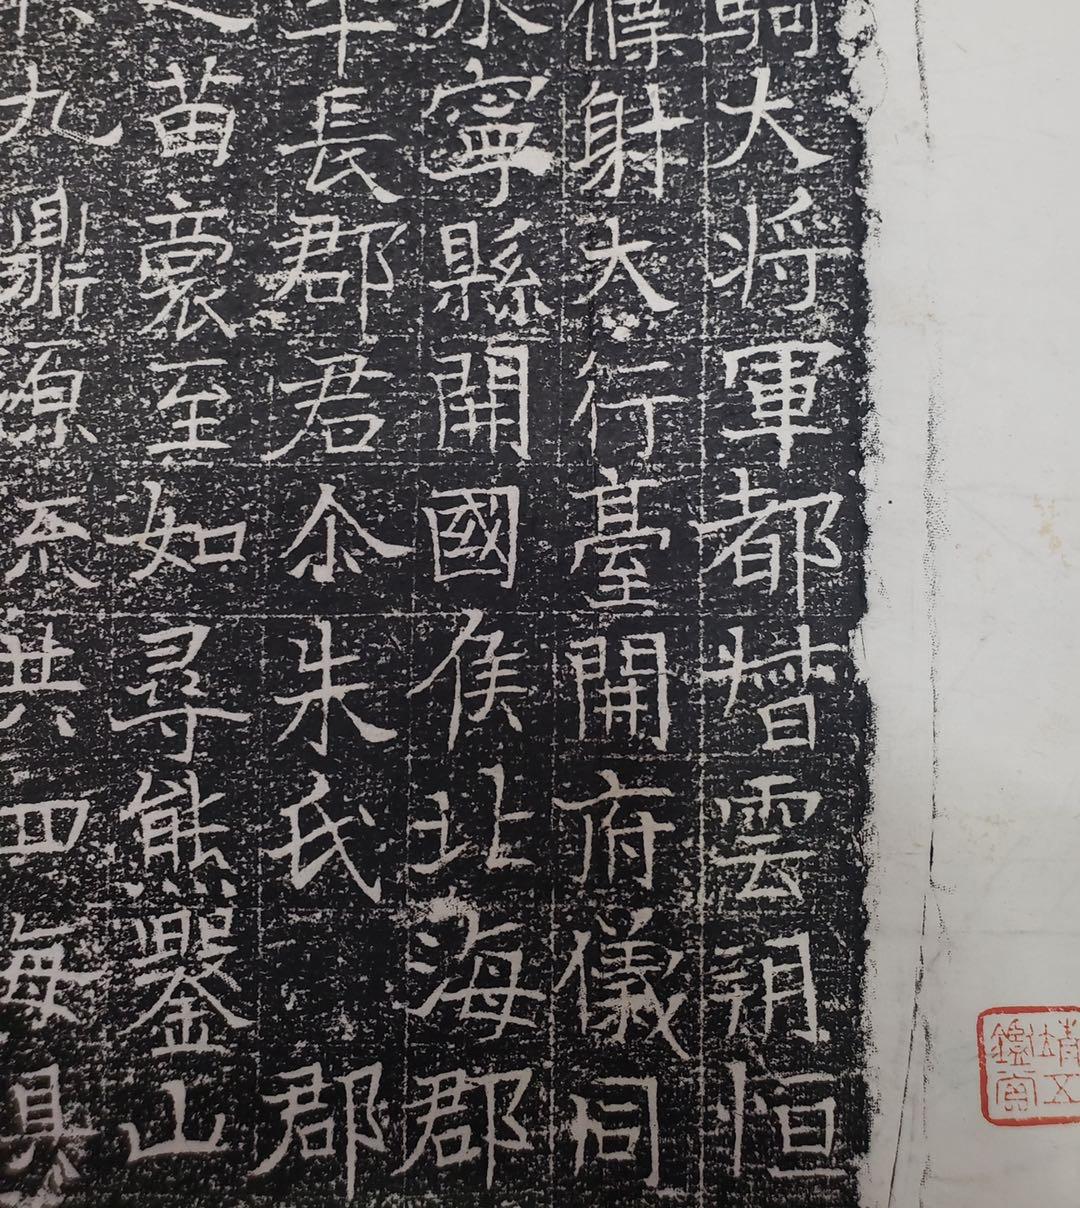 騎大將軍都督雲朔恒
僕射大行臺開府儀同
永寧縣開國侯北海郡
平長郡君尒朱氏 郡
苗裔至如尋熊鑿山
九鼎源系共四海具